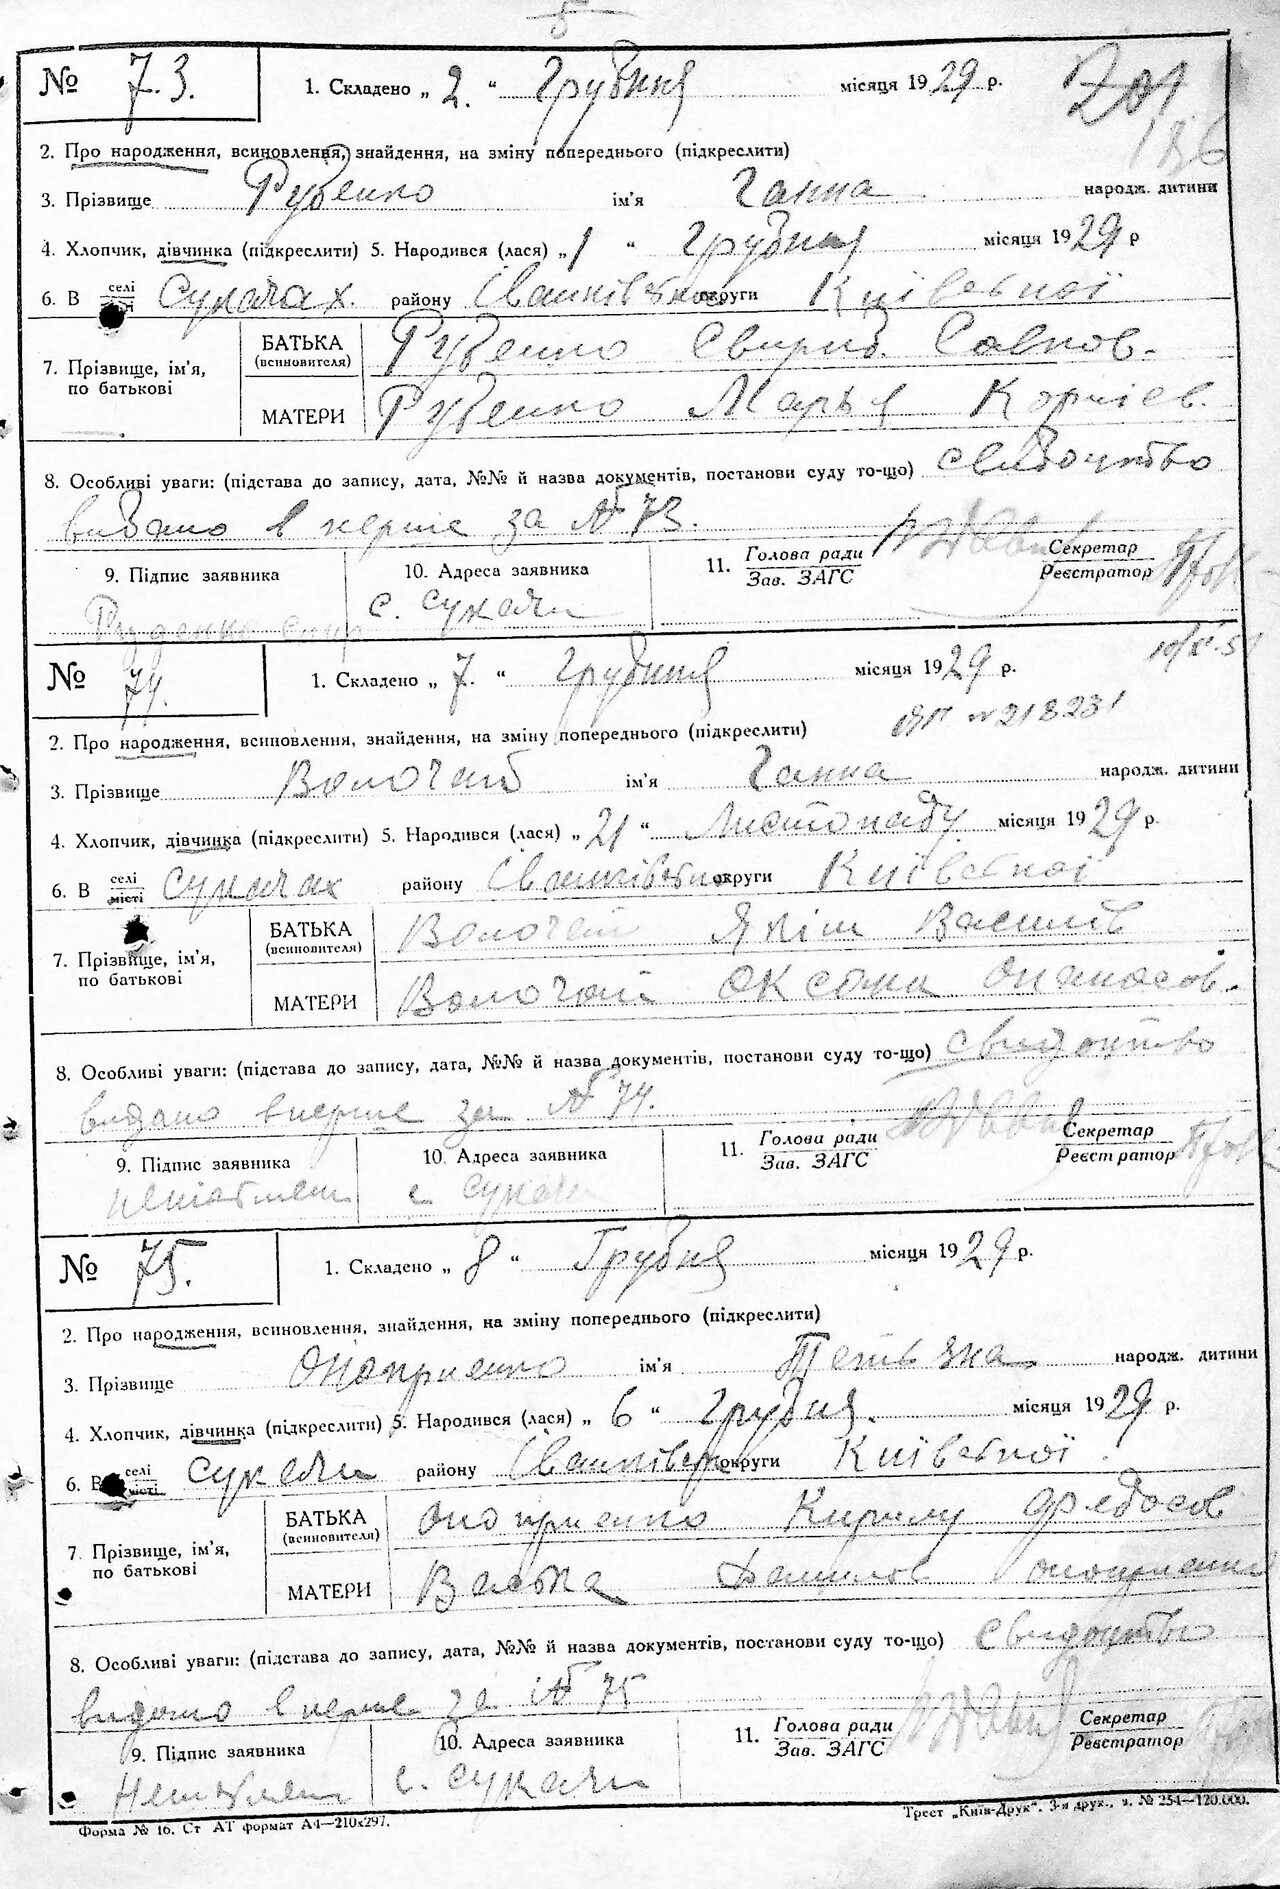 5
№ 73. 1. Складено „ 2. “ Грудня місяця 1929 р. 201
186
2. Про народження, всиновлення, знайдення, на зміну попереднього (підкреслити)
3. Прізвище Руденко ім'я Ганна народж. дитини
4. Хлопчик, дівчинка (підкреслити) 5. Народився (лася) „ 1 “ Грудня місяця 1929 р
6. В селі Сукачах. району Іванківсько округи Київської
7. Прізвище, ім'я, по батькові
БАТЬКА (всиновителя) Руденко Свирид. Савков.
МАТЕРИ Руденко Марья Корнієв.
8. Особливі уваги: (підстава до запису, дата, №№ й назва документів, постанови суду то-що) свидоцтво
видано в перше за № 73.
9. Підпис заявника 10. Адреса заявника 11. Голова ради Секретар
Зав. ЗАГС Реєстратор
Руденко с. Сукачи
№ 74. 1. Складено „ 7. “ Грудня місяця 1929 р.
№ 218231
2. Про народження, всиновлення, знайдення, на зміну попереднього (підкреслити)
3. Прізвище Волочай ім'я Ганна народж. дитини
4. Хлопчик, дівчинка (підкреслити) 5. Народився (лася) „ 21 “ Листопаду місяця 1929 р.
6. В селі місті Сукачах району Іванківсько округи Київської
7. Прізвище, ім'я, по батькові
БАТЬКА (всиновителя) Волочай Яким Василів
МАТЕРИ Волочай Оксана Опанасов.
8. Особливі уваги: (підстава до запису, дата, №№ й назва документів, постанови суду то-що) свидоцтво
видано вперше за № 74.
9. Підпис заявника 10. Адреса заявника 11. Голова ради Секретар
Зав. ЗАГС Реєстратор
с Сукачи
№ 75. 1. Складено „ 8 “ Грудня місяця 1929 р.
2. Про народження, всиновлення, знайдення, на зміну попереднього (підкреслити)
3. Прізвище Оноприенко ім'я Тетьяна народж. дитини
4. Хлопчик, дівчинка (підкреслити) 5. Народився (лася) „ 6 “ Грудня. місяця 1929 р.
6. В селі місті Сукачи району Іванківсько округи Київської.
7. Прізвище, ім'я, по батькові
БАТЬКА (всиновителя) Оноприенко Кирилу Федосов
МАТЕРИ Данилов Оноприенко
8. Особливі уваги: (підстава до запису, дата, №№ й назва документів, постанови суду то-що) свидоцтво
видано в перше за № 75
9. Підпис заявника 10. Адреса заявника 11. Голова ради Секретар
Зав. ЗАГС Реєстратор
с. Сукачи
Форма № 16. Ст АТ формат А4—210х297. Трест „Київ-Друк“. 3-я друк., з. № 254—120.000.